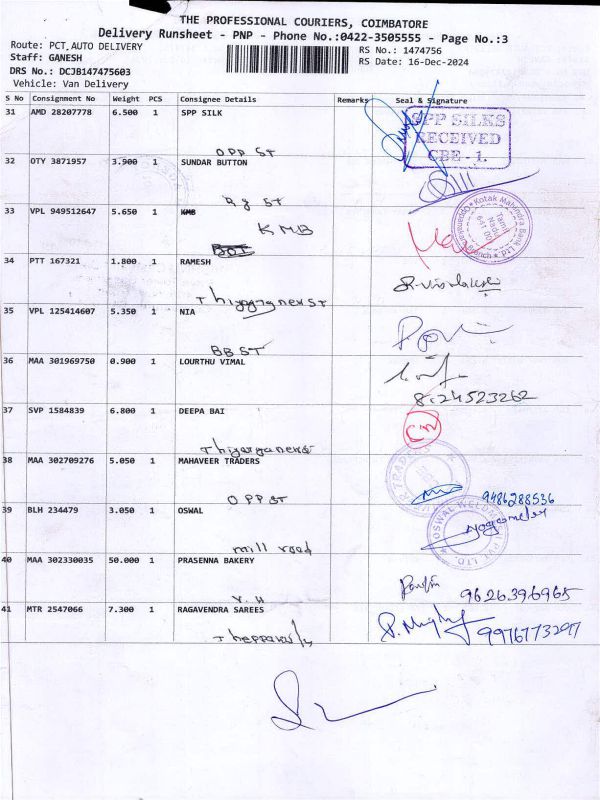 THE PROFESSIONAL COURIERS, COIMBATORE
Delivery Runsheet - PNP - Phone No.:0422-3505555 - Page No.:3
Route: PCT,AUTO DELIVERY
RS No.: 1474756
Staff: GANESH
RS Date: 16-Dec-2024
DRS No.: DCJB147475603
Vehicle: Van Delivery
S No Consignment No Weight PCS Consignee Details Remarks Seal & Signature
31 AMD 28207778 6.500 1 SPP SILK
SPP SILKS
RECEIVED
CBE - 1.
OPP ST
32 OTY 3871957 3.900 1 SUNDAR BUTTON
Rg ST
33 VPL 949512647 5.650 1 KMB
Kotak Mahindra Bank
Tamil
Nadu
KMB
34 PTT 167321 1.800 1 RAMESH
35 VPL 125414607 5.350 1 NIA
BB ST
36 MAA 301969750 0.900 1 LOURTHU VIMAL
8:24523262
37 SVP 1584839 6.800 1 DEEPA BAI
38 MAA 302709276 5.050 1 MAHAVEER TRADERS
OPP ST
9486288536
39 BLH 234479 3.050 1 OSWAL
mill road
40 MAA 302330035 50.000 1 PRASENNA BAKERY
V.H
9626396965
41 MTR 2547066 7.300 1 RAGAVENDRA SAREES
9976773297